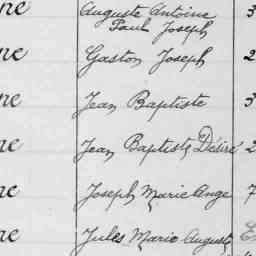 ne Auguste Antoine 3
Paul Joseph
ne Gaston Joseph 2
ne Jean Baptiste 3
ne Jean Baptiste Désiré 2
ne Joseph Marie Ange 7
ne Jules Marie Auguste